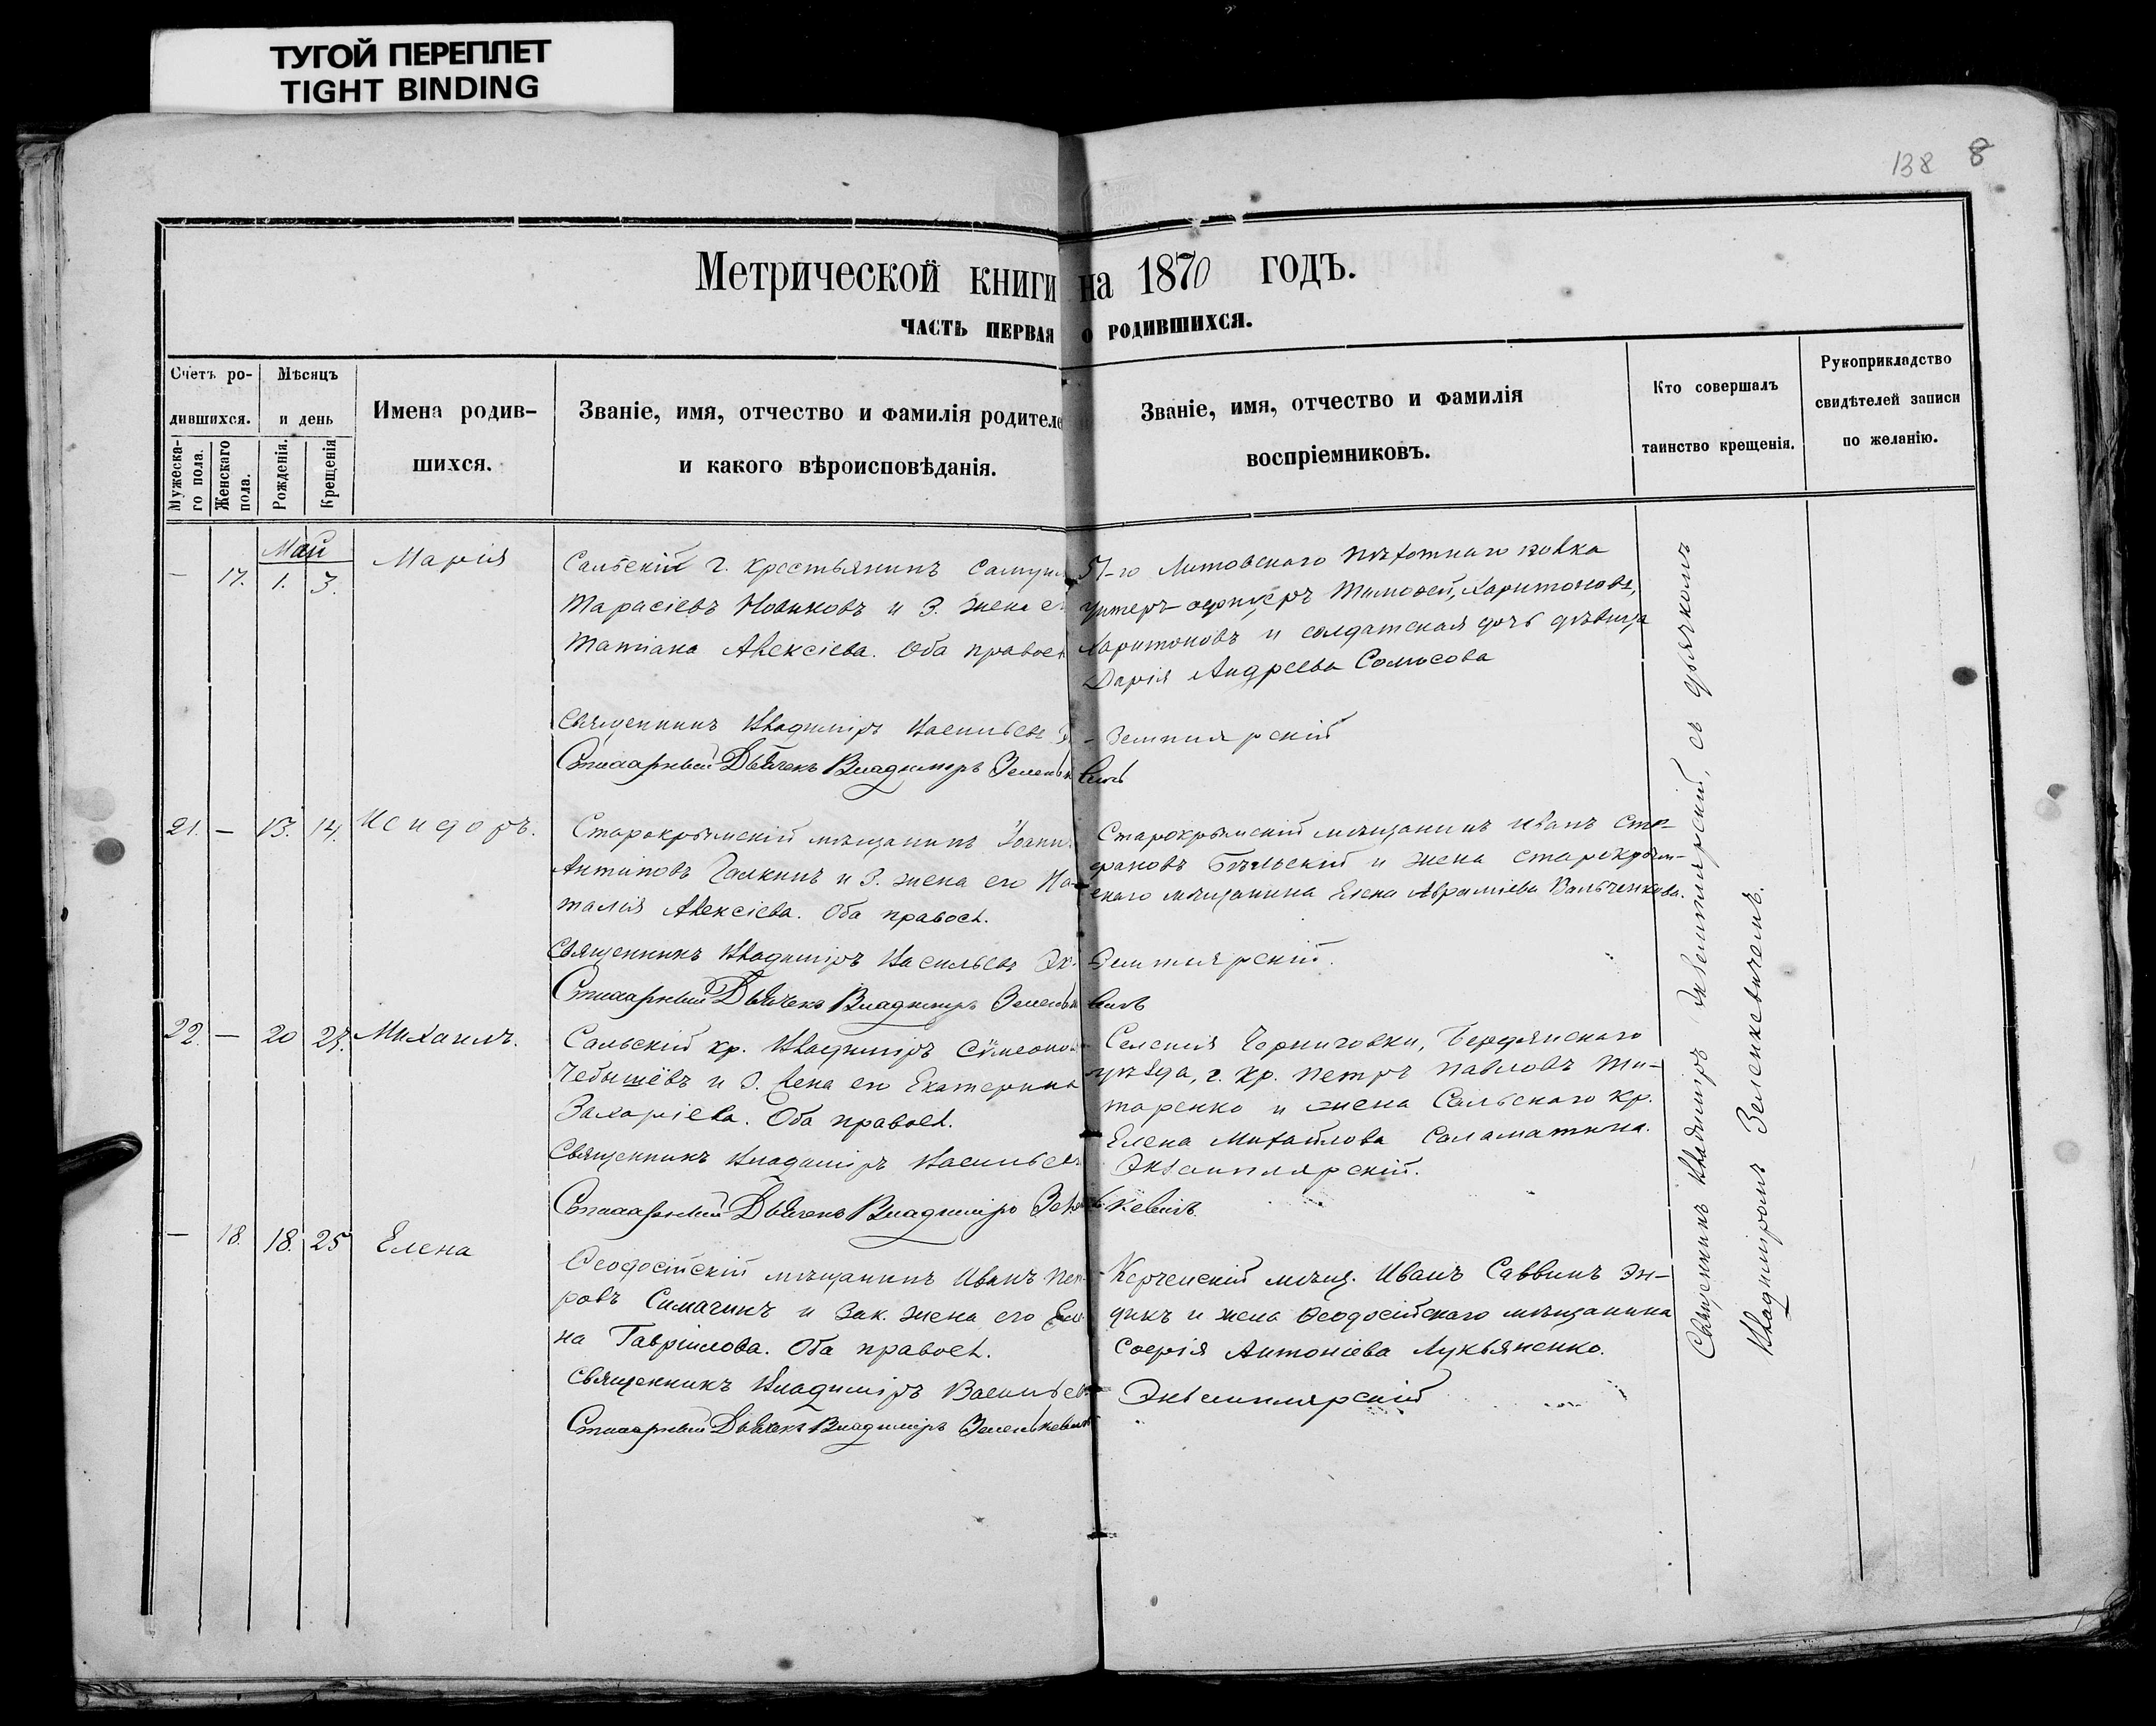 ТУГОЙ ПЕРЕПЛЕТ
TIGHT BINDING
138 8
Метрической книги на 1870 годъ.
ЧАСТЬ ПЕРВАЯ О РОДИВШИХСЯ.
Счетъ ро-
дившихся.
Мужеска-
го пола.
Женскаго
пола.
Мѣсяцъ
и день
Рожденія.
Крещенія
Имена родив-
шихся.
Званіе, имя, отчество и фамилія родителе
и какого вѣроисповѣданія.
Званіе, имя, отчество и фамилія
воспріемниковъ.
Кто совершалъ
таинство крещенія.
Рукоприкладство
свидѣтелей записи
по желанію.
Май
— 17. 1. 3. Марія
Сальскій г. крестьянинъ Самуил
Тарасіевъ Новиковъ и З. жена е
Татіана Алексіева. Оба правосл
Священникъ Владиміръ Васильевъ
Стихарный Дьячекъ Владимиръ Зелень
51-го Литовскаго пѣхотнаго полка
унтеръ-офицеръ Тимофей Харитоновъ,
Харитоновъ и солдатская дочь дѣвица
Дарія Андреева
земплярскій
кевичъ
21. — 13. 14. Исидоръ.
Старокрымскій мѣщанинъ Іоаннъ
Антиповъ Галкинъ и З. жена его На-
талія Алексіева. Оба правосл.
Священникъ Владиміръ Васильевъ Эк
Стихарный Дьячекъ Владимиръ Зелень
Старокрымскій мѣщанинъ Иванъ Сте-
фановъ Бѣльскій и жена старокрым-
скаго мѣщанина Елена Авраміева Вальченкова.
земплярскій.
кевичъ
22. — 20 23. Михаилъ.
Сальскій кр. Владиміръ Сѵмеонов
Чебышёвъ и З. жена его Екатерина
Захаріева. Оба правосл.
Священникъ Владиміръ Васильевъ
Стихарный Дьячекъ Владимиръ Зелен
Селенія Черниговки, Бердянскаго
уѣзда, г. кр. Петръ Павловъ Ти-
таренко и жена Сальскаго кр.
Елена Михайлова Саламатина.
Экземплярскій.
ькевичъ.
— 18. 18. 25 Елена
Ѳеодосійскій мѣщанинъ Иванъ Пет-
ровъ Симагинъ и Зак. жена его Еле
на Гавріилова. Оба правосл.
Священникъ Владиміръ Васильевъ
Стихарный Дьячекъ Владимиръ Зеленькевичъ
Керченскій мѣщ. Иванъ Саввинъ Эн-
дикъ и жена Ѳеодосійскаго мѣщанина
Софія Антоніева Лукьяненко.
Экземплярскій
Священникъ Владиміръ Экземплярскій, съ дьячкомъ
Владиміромъ Зеленкевичемъ.